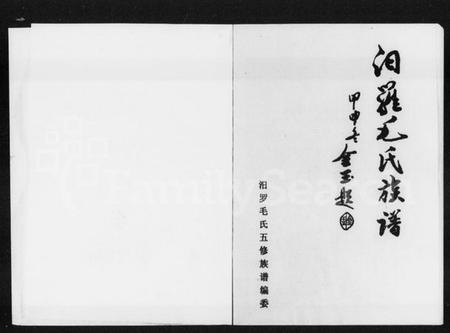 汨羅毛氏族譜
甲申冬金玉题
汨罗毛氏五修族谱编委
FamilySearch